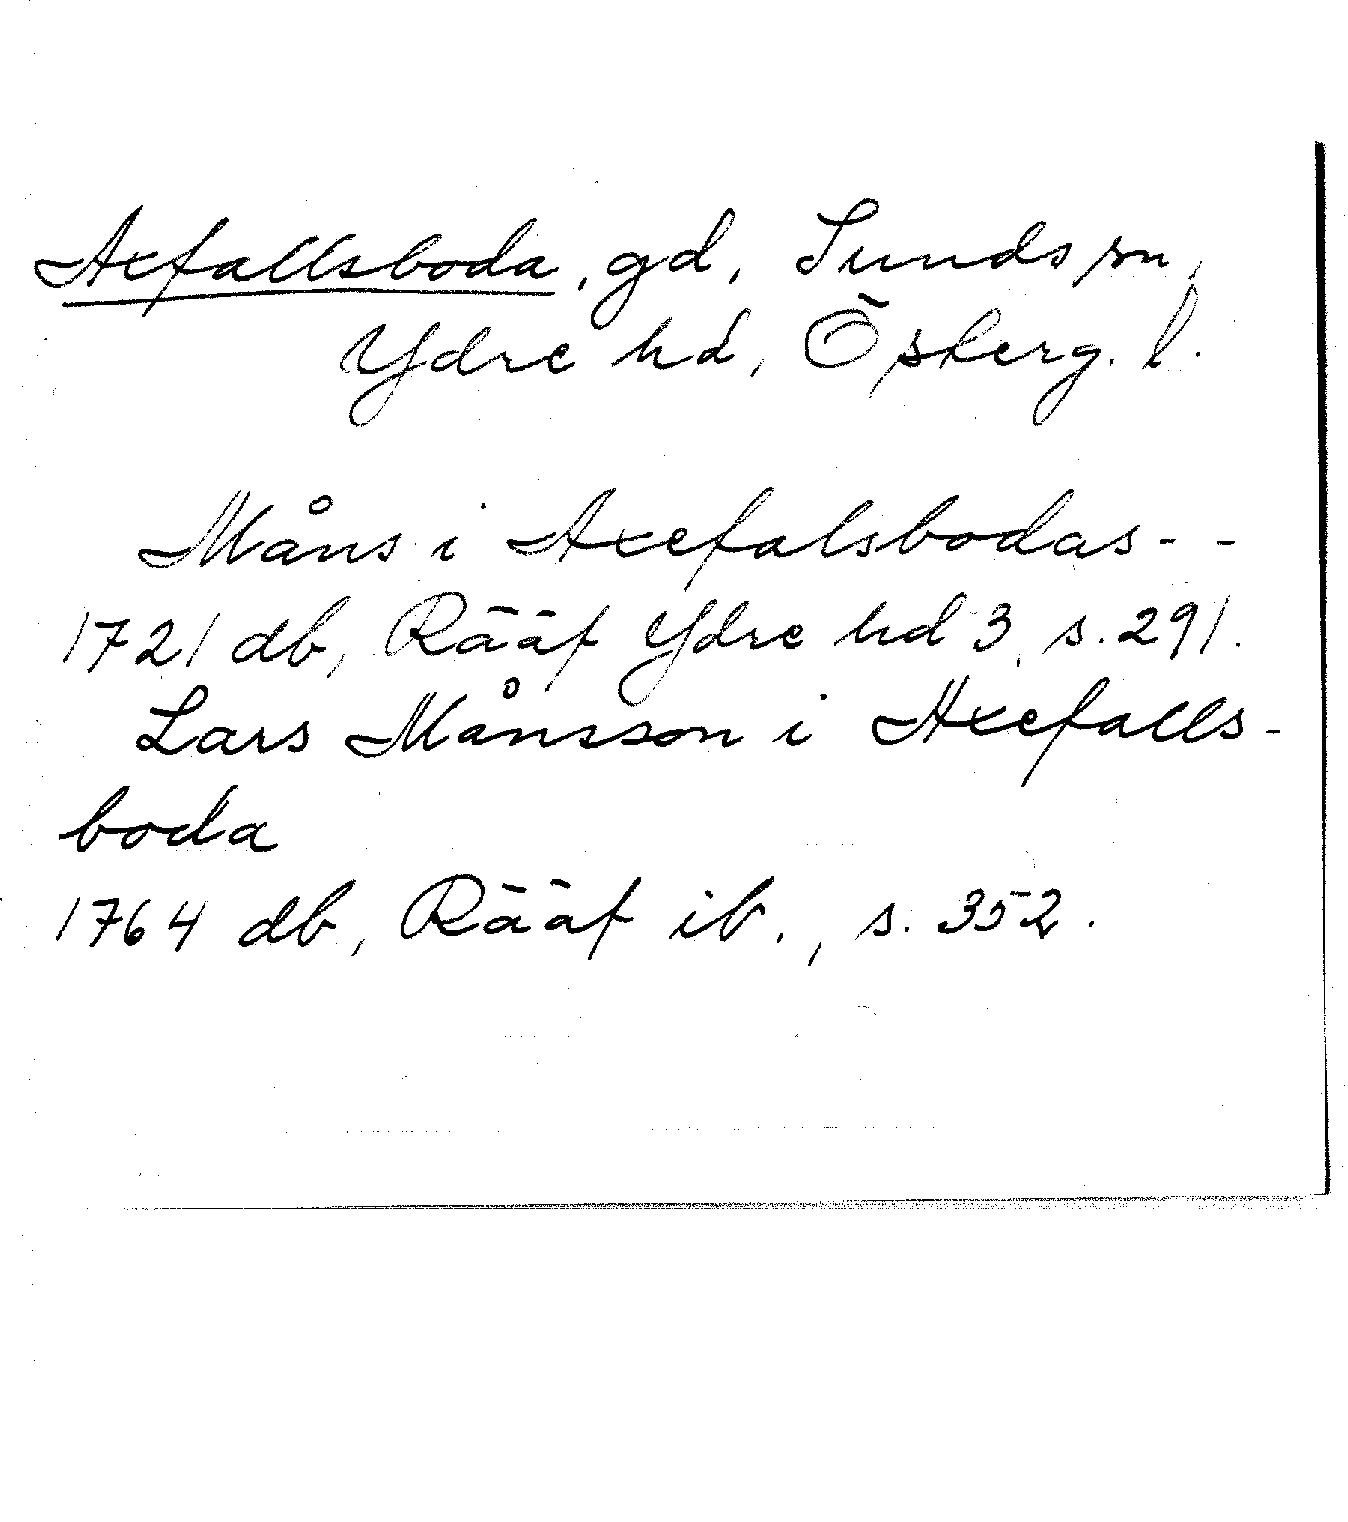 Axfallsboda, gd, Sunds sn,
Ydre hd, Österg. l.
Måns i Axefalsbodas - -
1721 db, Rääf Ydre hd 3, s. 291.
Lars Månsson i Axefalls-
boda
1764 db, Rääf ib., s. 352.